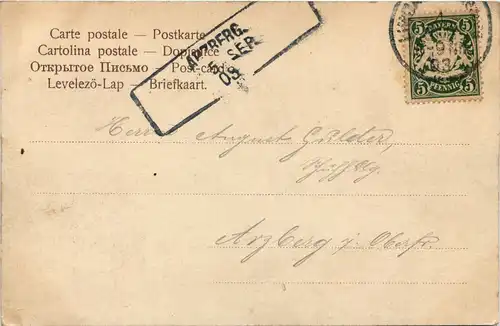 Carte postale — Postkarte
Cartolina postale — Dopisnice
Открытое Письмо — Post-card
Levelező-Lap — Briefkarte.
ARZBERG.
SEP.
03
BAYERN
5 5
5 PFENNIG 5
Herrn August
Arzberg i. Oberfr.